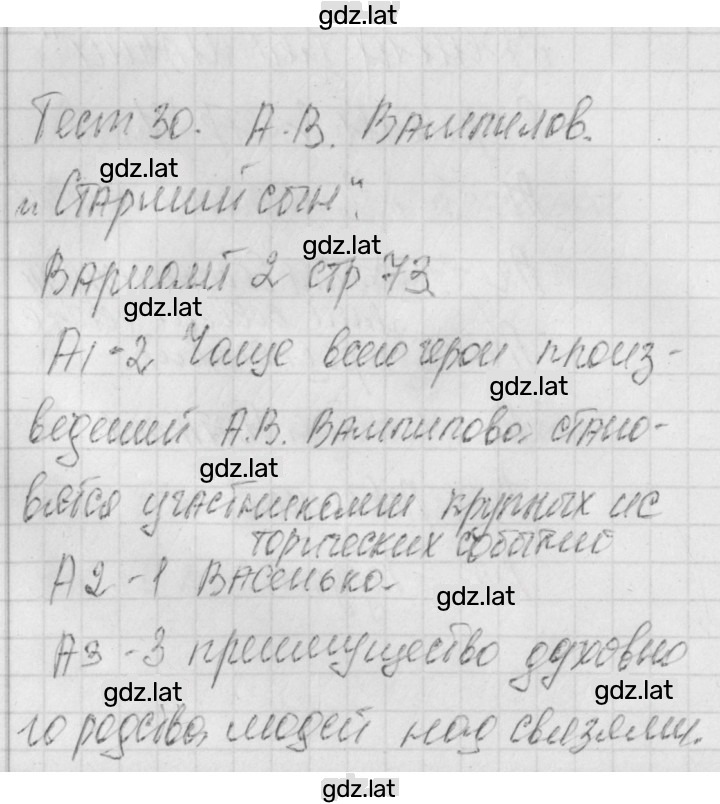 gdz.lat
Тест 30. А.В. Вампилов.
gdz.lat
"Старший сын".
gdz.lat
Вариант 2 стр 73
gdz.lat
А1-2 Чаще всего герои произ-
gdz.lat
ведений А.В. Вампилова стано-
gdz.lat
вятся участниками крупных ис
торических событий
А2-1 Васенька
gdz.lat
А3-3 преимущество духовно
gdz.lat gdz.lat
го родства людей над связями.
gdz.lat